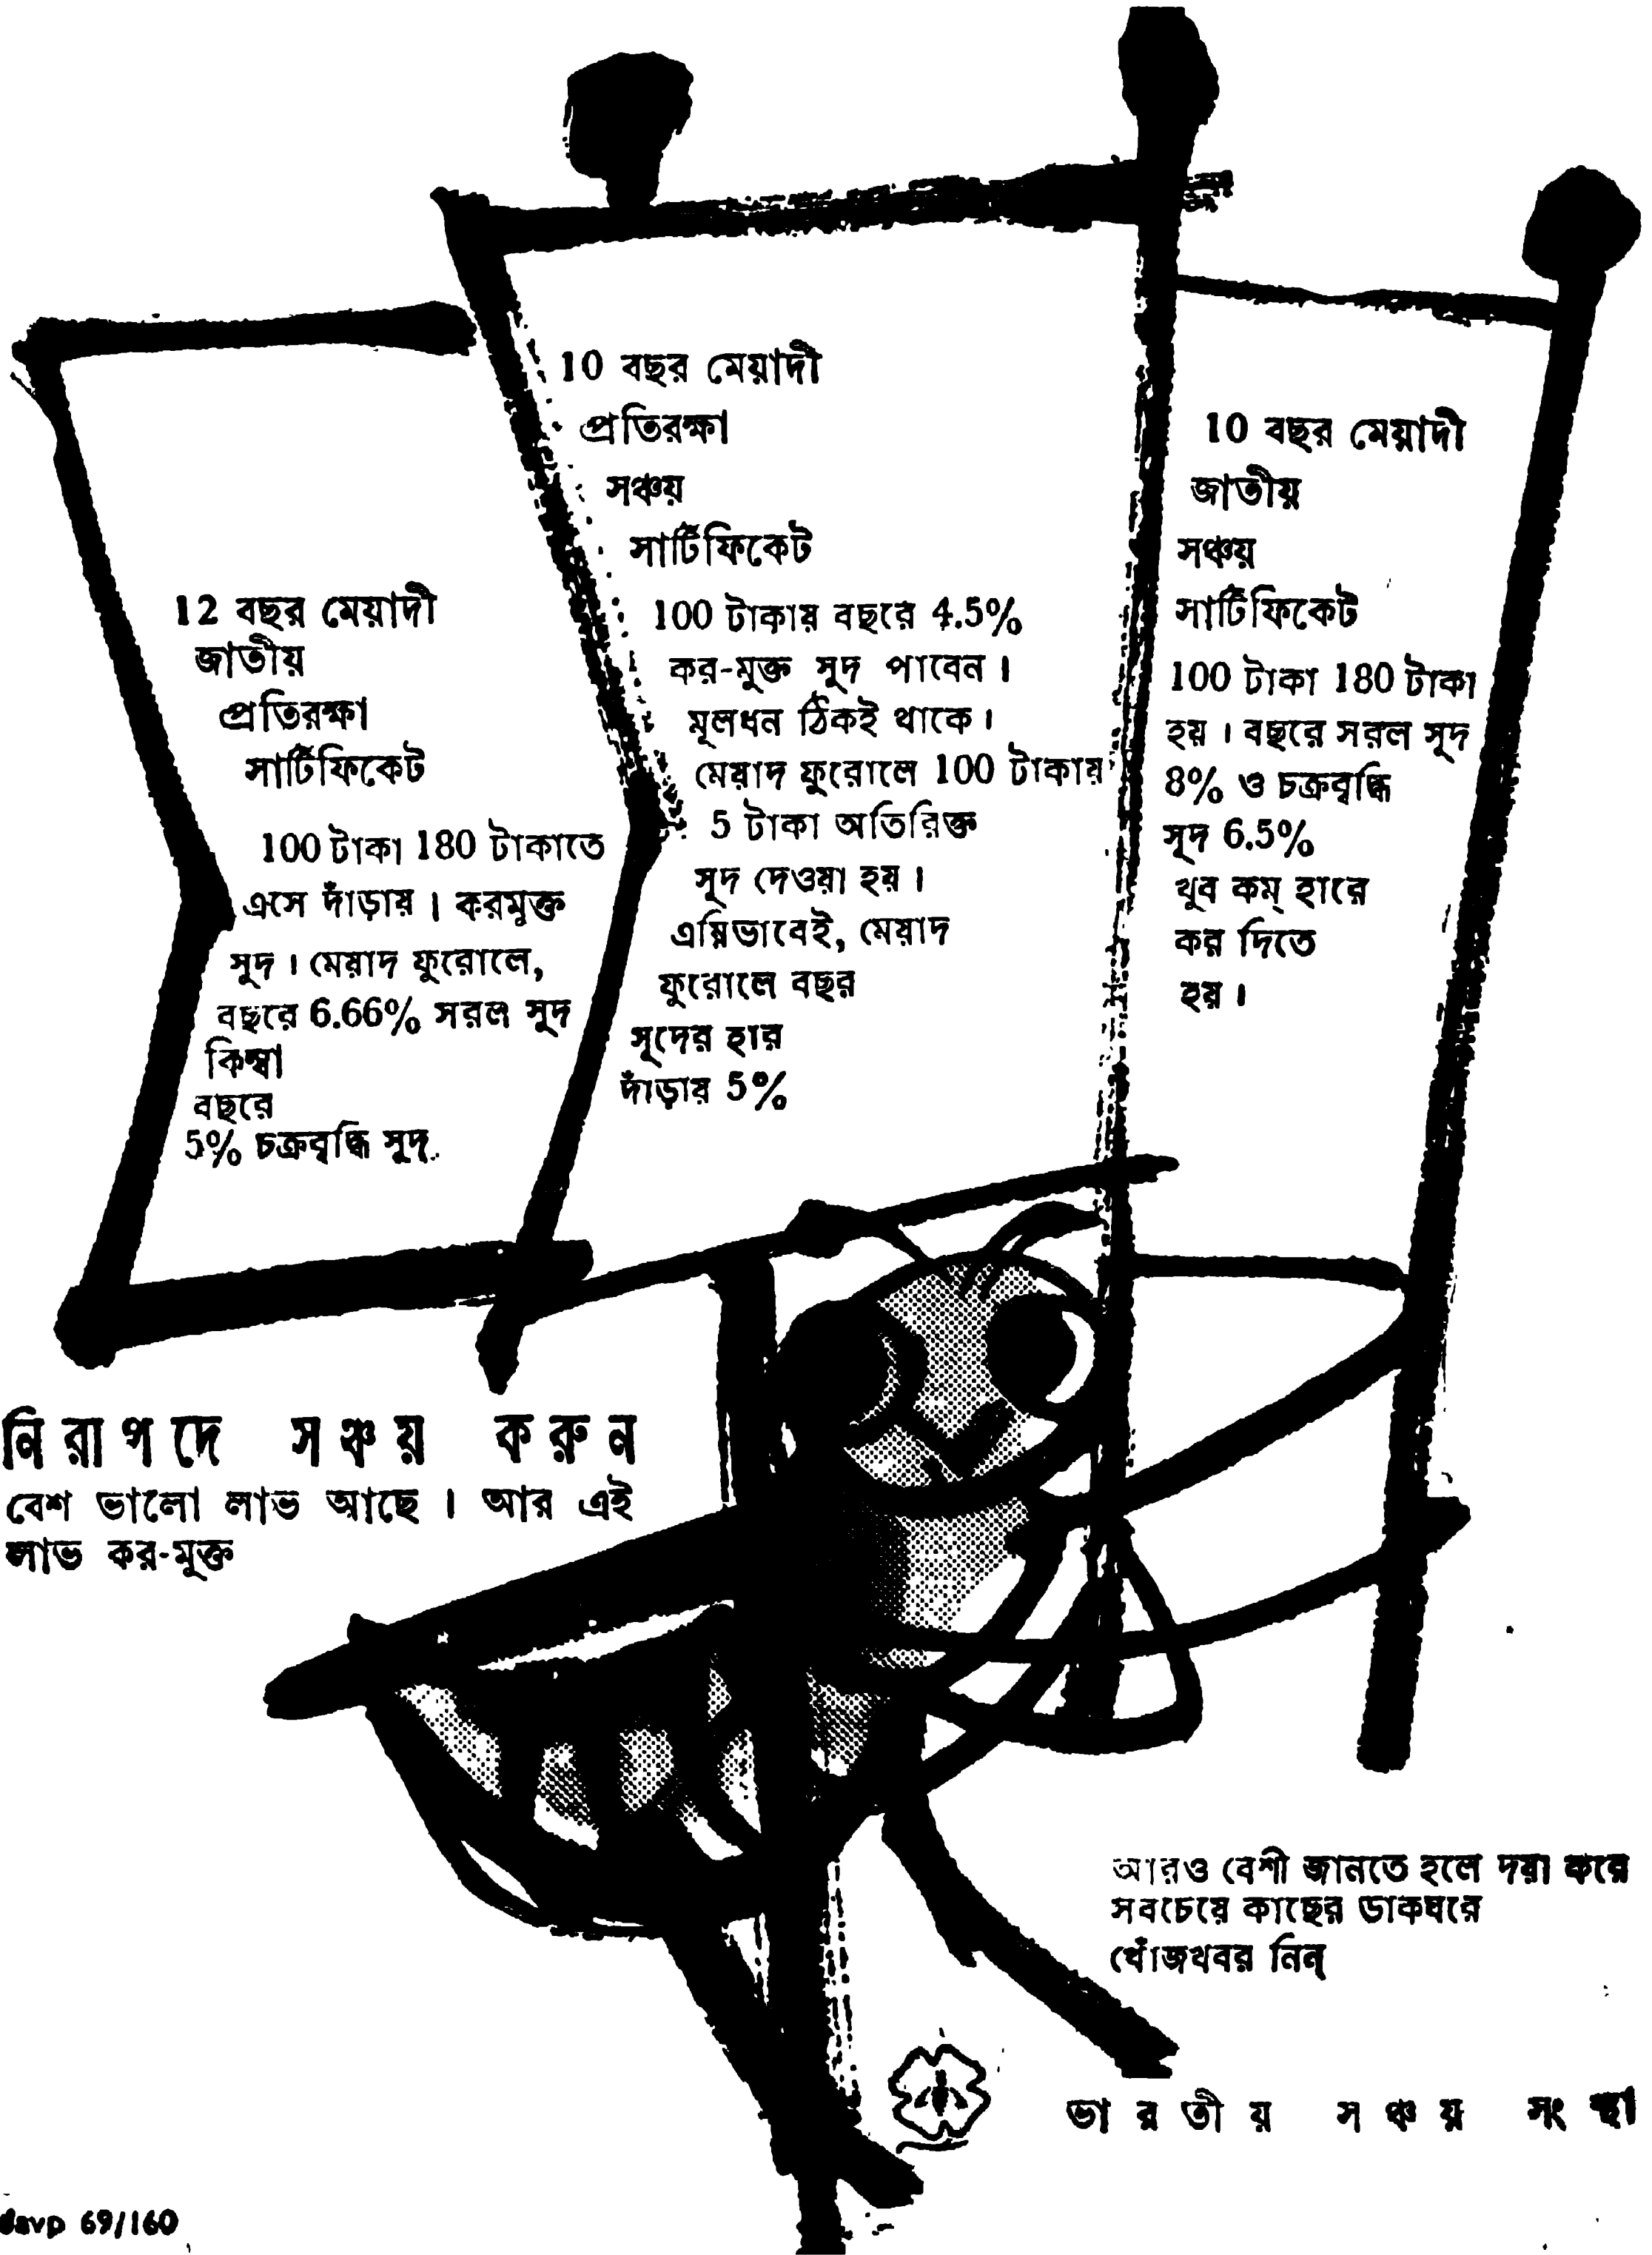 12 বছর মেয়াদী
জাতীয়
প্রতিরক্ষা
সার্টিফিকেট
100 টাকা 180 টাকাতে
এসে দাঁড়ায়। করমুক্ত
সুদ। মেয়াদ ফুরোলে,
বছরে 6.66% সরল সুদ
কিম্বা
বছরে
5% চক্রবৃদ্ধি সুদ.
10 বছর মেয়াদী
প্রতিরক্ষা
সঞ্চয়
সার্টিফিকেট
100 টাকায় বছরে 4.5%
কর-মুক্ত সুদ পাবেন।
মূলধন ঠিকই থাকে।
মেয়াদ ফুরোলে 100 টাকায়
5 টাকা অতিরিক্ত
সুদ দেওয়া হয়।
এম্নিভাবেই, মেয়াদ
ফুরোলে বছর
সুদের হার
দাঁড়ায় 5%
10 বছর মেয়াদী
জাতীয়
সঞ্চয়
সার্টিফিকেট
100 টাকা 180 টাকা
হয়। বছরে সরল সুদ
8% ও চক্রবৃদ্ধি
সুদ 6.5%
খুব কম্ হারে
কর দিতে
হয়।
নিরাপদে সঞ্চয় করুন
বেশ ভালো লাভ আছে। আর এই
লাভ কর-মুক্ত
আরও বেশী জানতে হলে দয়া করে
সবচেয়ে কাছের ডাকঘরে
খোঁজখবর নিন্
ভারতীয় সঞ্চয় সংস্থা
davp 69/160